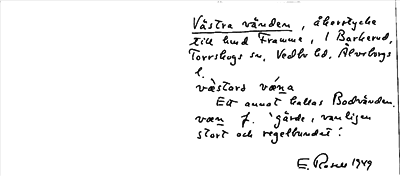 Västra vänden, åkerstycke
till hmd Framme, i Barkerud,
Torrskogs sn, Vedbo hd, Älvsborgs
l.
västərd væna
Ett annat kallas Bodvänden.
væn f. 'gärde, vanligen
stort och regelbundet'.
E. Rosell 1949